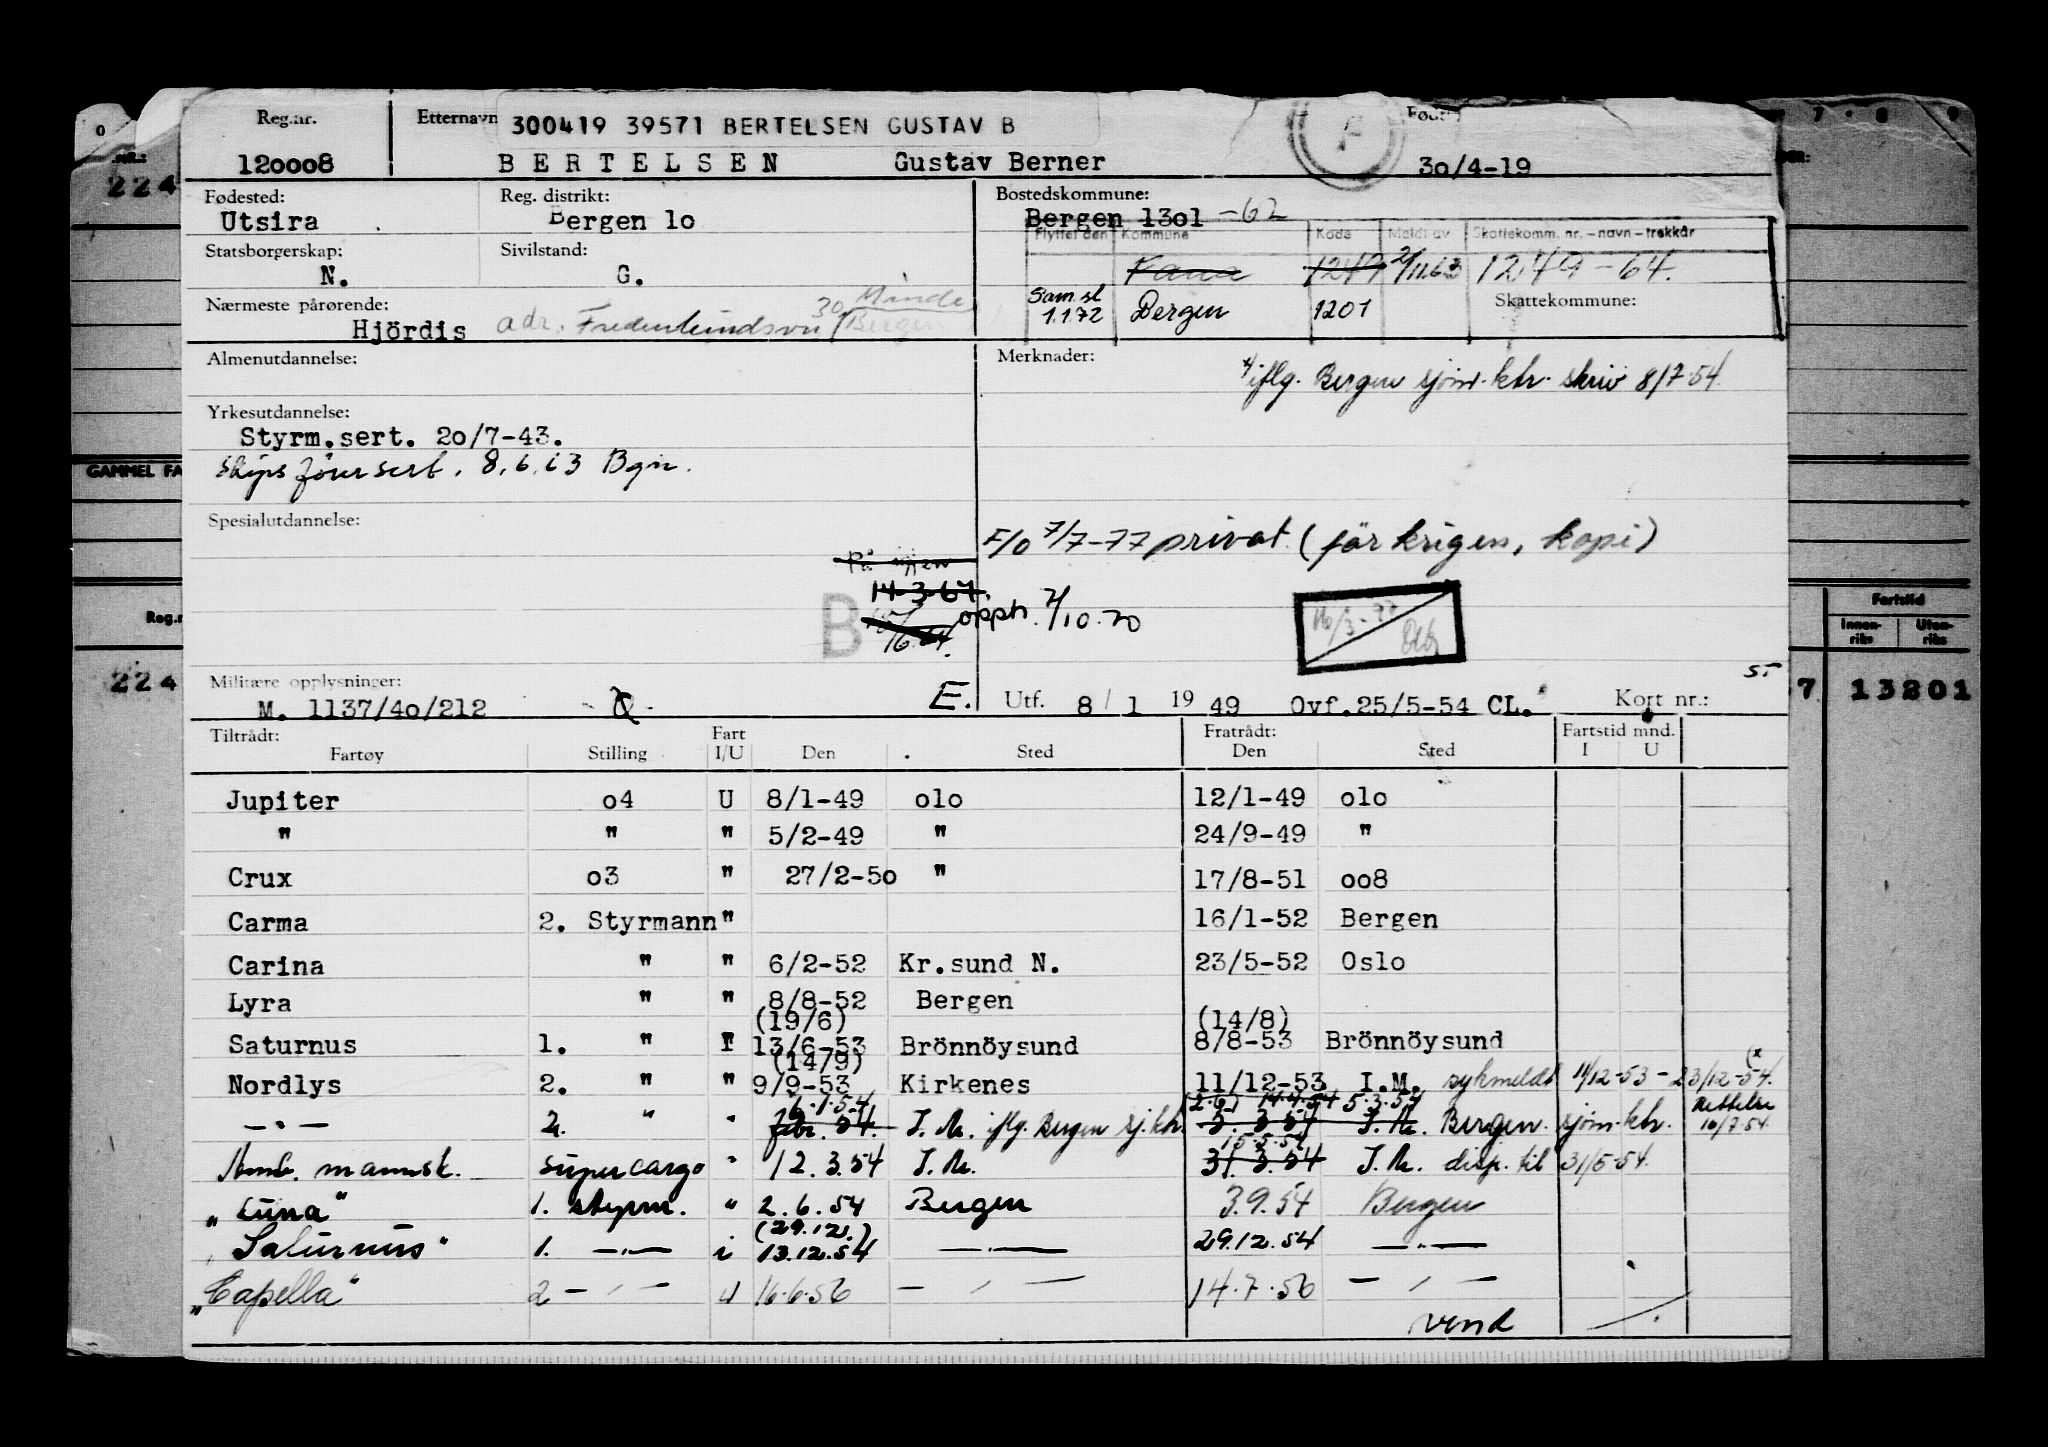 Reg.nr. Etternavn 300419 39571 BERTELSEN GUSTAV B Født:
120008 BERTELSEN Gustav Berner 30/4-19
Fødested: Reg. distrikt: Bostedskommune:
Utsira Bergen 10 Bergen 1301 -62
Flyttet den Kommune Kode Meldt av Skattekomm. nr. – navn – trekkår
Statsborgerskap: Sivilstand:
N. G. Fana 1249 2/11.63 1249 - 64.
Nærmeste pårørende: Sam.sl 1.1.72 Bergen 1201 Skattekommune:
Hjördis adr. 30 Minde Bergen
Almenutdannelse: Merknader:
iflg. Bergen sjøm.ktr. skriv 8/7-54.
Yrkesutdannelse:
Styrm.sert. 20/7-43.
Skipsførersert. 8.6.63 Bgn.
Spesialutdannelse:
F/O 7/7-77 privat (før krigen, kopi)
14-3-67
B opph. 7/10.70
Militære opplysninger:
M. 1137/40/212 E. Utf. 8/1 1949 Ovf.25/5-54 CL. Kort nr.: 5.
Tiltrådt: Fart Fratrådt: Fartstid mnd.
Fartøy Stilling I/U Den Sted Den Sted I U
Jupiter 04 U 8/1-49 olo 12/1-49 olo
" " " 5/2-49 " 24/9-49 "
Crux 03 " 27/2-50 " 17/8-51 008
Carma 2. Styrmann " 16/1-52 Bergen
Carina " " 6/2-52 Kr.sund N. 23/5-52 Oslo
Lyra " " 8/8-52 Bergen
(19/6) (14/8)
Saturnus 1. " I 13/6-53 Brönnöysund 8/8-53 Brönnöysund
(14/9)
Nordlys 2. " " 9/9-53 Kirkenes 11/12-53 I.M. sykmeldt 11/12-53 - 23/12-54.
6.1.54 5.3.54 Rettelse
—"— 2. " " febr. 54. I.M. iflg. Bergen sj.ktr. 5. 3.54 I.M. Bergen sjøm.ktr. 10/7-54.
15.5.54
Amb. mannsk. supercargo " 12.3.54 I.M. 31.3.54 I.M. disp. til 31/5-54.
„Luna" 1. styrm. " 2.6.54 Bergen 3.9.54 Bergen
(29.12.)
„Saturnus" 1. —"— i 13.12.54 —"— 29.12.54 —"—
„Capella" 2 —"— u 16.6.56 —"— 14.7.56 —"—
vend
GAMMEL FA
224
Reg.n
224
7 8 9
Fartstid
Innen-riks Uten-riks
7 13201